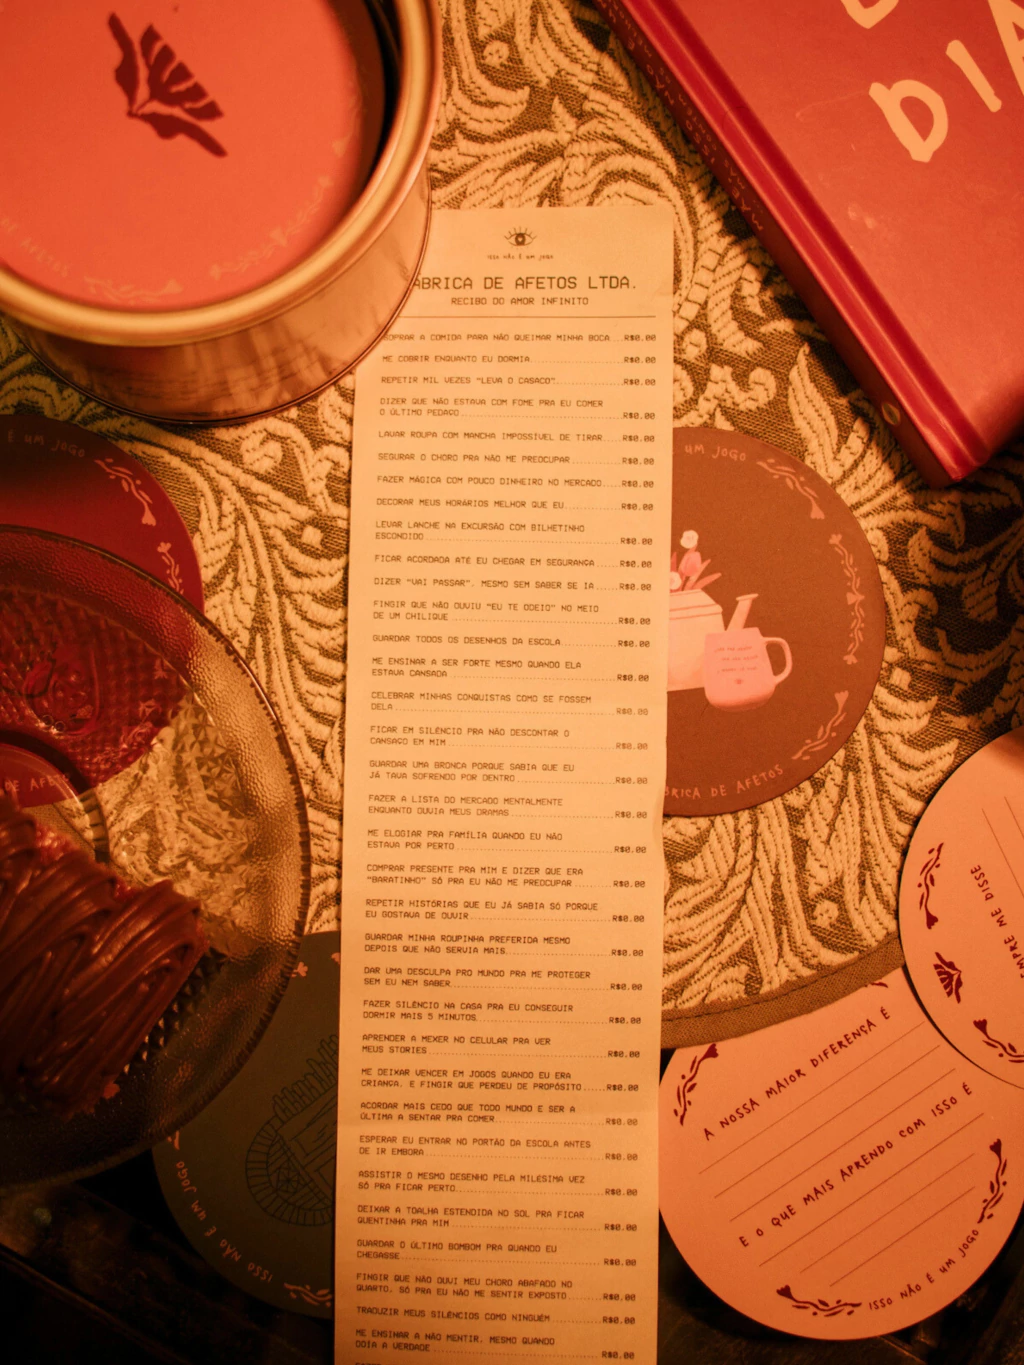 DIA
DE AFETOS
isso não é um jogo
ÁBRICA DE AFETOS LTDA.
RECIBO DO AMOR INFINITO
SOPRAR A COMIDA PARA NÃO QUEIMAR MINHA BOCA...R$0.00
ME COBRIR ENQUANTO EU DORMIA...R$0.00
REPETIR MIL VEZES "LEVA O CASACO"...R$0.00
DIZER QUE NÃO ESTAVA COM FOME PRA EU COMER
O ÚLTIMO PEDAÇO...R$0.00
LAVAR ROUPA COM MANCHA IMPOSSÍVEL DE TIRAR...R$0.00
SEGURAR O CHORO PRA NÃO ME PREOCUPAR...R$0.00
FAZER MÁGICA COM POUCO DINHEIRO NO MERCADO...R$0.00
DECORAR MEUS HORÁRIOS MELHOR QUE EU...R$0.00
LEVAR LANCHE NA EXCURSÃO COM BILHETINHO
ESCONDIDO...R$0.00
FICAR ACORDADA ATÉ EU CHEGAR EM SEGURANÇA...R$0.00
DIZER "VAI PASSAR", MESMO SEM SABER SE IA...R$0.00
FINGIR QUE NÃO OUVIU "EU TE ODEIO" NO MEIO
DE UM CHILIQUE...R$0.00
GUARDAR TODOS OS DESENHOS DA ESCOLA...R$0.00
ME ENSINAR A SER FORTE MESMO QUANDO ELA
ESTAVA CANSADA...R$0.00
CELEBRAR MINHAS CONQUISTAS COMO SE FOSSEM
DELA...R$0.00
FICAR EM SILÊNCIO PRA NÃO DESCONTAR O
CANSAÇO EM MIM...R$0.00
GUARDAR UMA BRONCA PORQUE SABIA QUE EU
JÁ TAVA SOFRENDO POR DENTRO...R$0.00
FAZER A LISTA DO MERCADO MENTALMENTE
ENQUANTO OUVIA MEUS DRAMAS...R$0.00
ME ELOGIAR PRA FAMÍLIA QUANDO EU NÃO
ESTAVA POR PERTO...R$0.00
COMPRAR PRESENTE PRA MIM E DIZER QUE ERA
"BARATINHO" SÓ PRA EU NÃO ME PREOCUPAR...R$0.00
REPETIR HISTÓRIAS QUE EU JÁ SABIA SÓ PORQUE
EU GOSTAVA DE OUVIR...R$0.00
GUARDAR MINHA ROUPINHA PREFERIDA MESMO
DEPOIS QUE NÃO SERVIA MAIS...R$0.00
DAR UMA DESCULPA PRO MUNDO PRA ME PROTEGER
SEM EU NEM SABER...R$0.00
FAZER SILÊNCIO NA CASA PRA EU CONSEGUIR
DORMIR MAIS 5 MINUTOS...R$0.00
APRENDER A MEXER NO CELULAR PRA VER
MEUS STORIES...R$0.00
ME DEIXAR VENCER EM JOGOS QUANDO EU ERA
CRIANÇA, E FINGIR QUE PERDEU DE PROPÓSITO...R$0.00
ACORDAR MAIS CEDO QUE TODO MUNDO E SER A
ÚLTIMA A SENTAR PRA COMER...R$0.00
ESPERAR EU ENTRAR NO PORTÃO DA ESCOLA ANTES
DE IR EMBORA...R$0.00
ASSISTIR O MESMO DESENHO PELA MILESIMA VEZ
SÓ PRA FICAR PERTO...R$0.00
DEIXAR A TOALHA ESTENDIDA NO SOL PRA FICAR
QUENTINHA PRA MIM...R$0.00
GUARDAR O ÚLTIMO BOMBOM PRA QUANDO EU
CHEGASSE...R$0.00
FINGIR QUE NÃO OUVI MEU CHORO ABAFADO NO
QUARTO, SÓ PRA EU NÃO ME SENTIR EXPOSTO...R$0.00
TRADUZIR MEUS SILÊNCIOS COMO NINGUÉM...R$0.00
ME ENSINAR A NÃO MENTIR, MESMO QUANDO
DOIA A VERDADE...R$0.00
É UM JOGO
DE AFETO
UM JOGO
BRICA DE AFETOS
ISSO NÃO É UM JOGO
EMPRE ME DISSE
A NOSSA MAIOR DIFERENÇA É
E O QUE MAIS APRENDO COM ISSO É
ISSO NÃO É UM JOGO